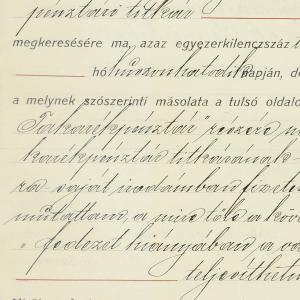 pénztári titkár
megkeresésére ma, azaz egyezerkilencszáz
hó huszonhatodik napján, de
a melynek szószerinti másolata a tulsó oldalo
Takarékpénztár" részére
karékpénztár titkárának
ra saját irodámban fizeté
mutattam, a mire tőle a köve
" fedezet hiányában a vá
teljesíthetem